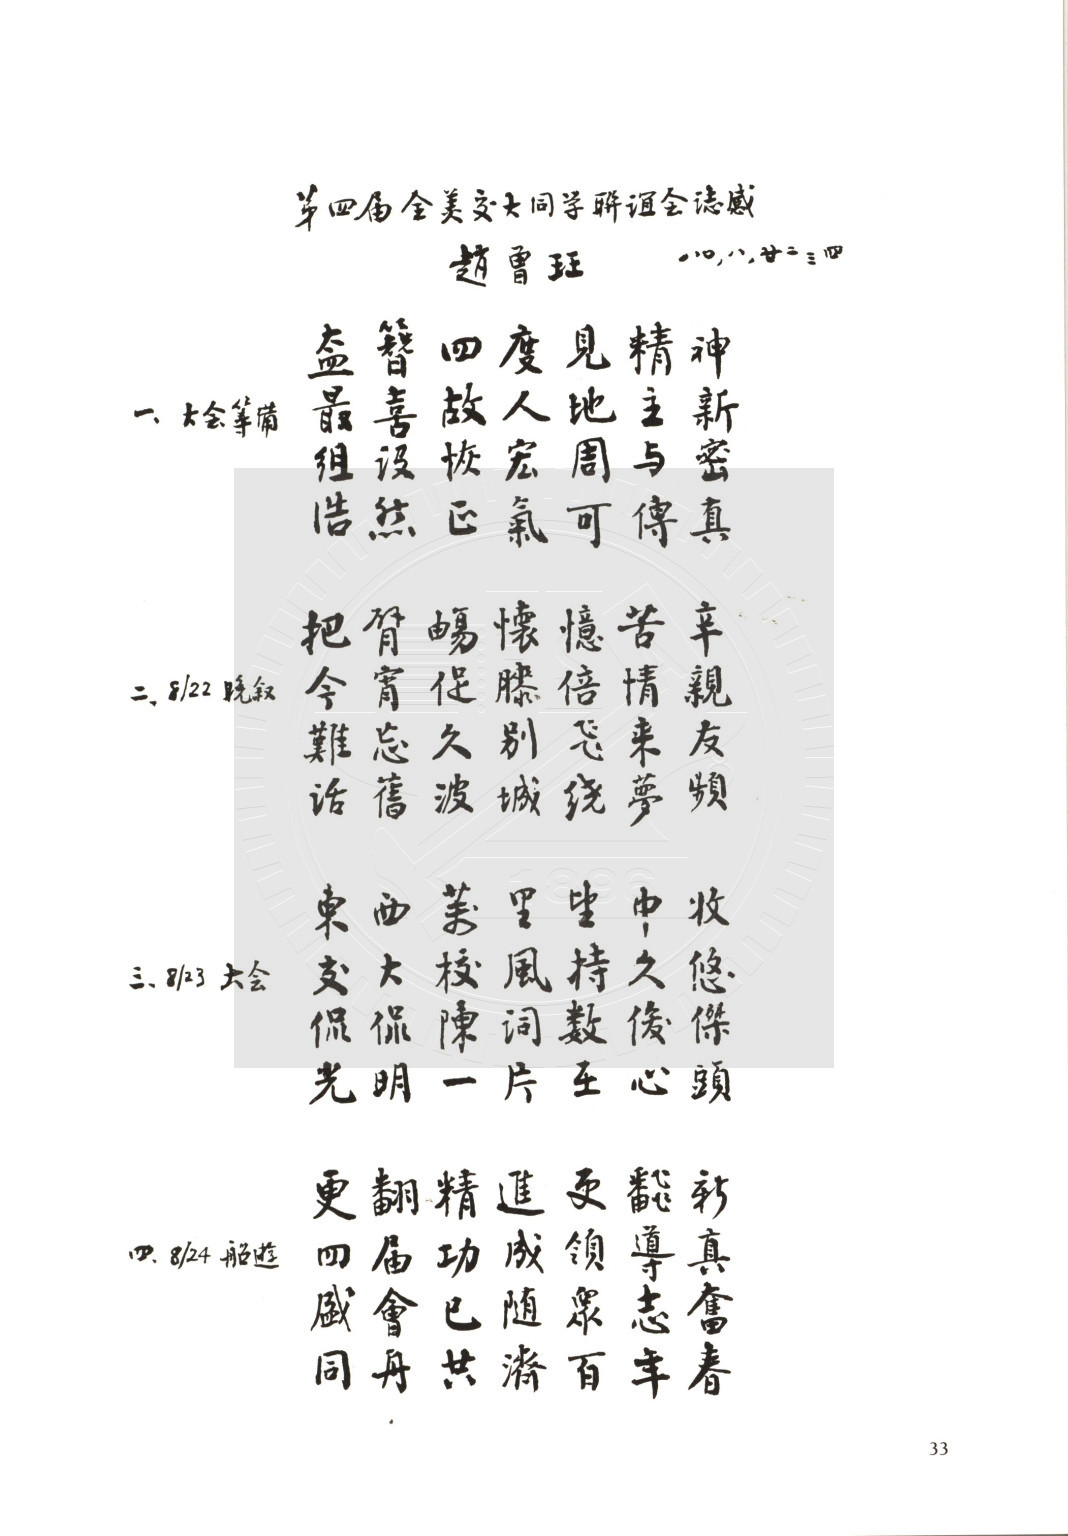 第四届全美交大同学聯誼会誌感
趙曾珏 八〇,八,廿二三四
盍簪四度見精神
一、大会筹備 最喜故人地主新
组设恢宏周与密
浩然正氣可傳真
把臂暢懷憶苦辛
二、8/22 晚叙 今宵促膝倍情親
難忘久別飞来友
话舊波城绕夢頻
東西萬里望中收
三、8/23 大会 交大校風持久悠
侃侃陳词数俊傑
光明一片在心頭
更翻精進更翻新
四、8/24 船遊 四届功成領導真
盛會已随眾志奮
同舟共濟百年春
33